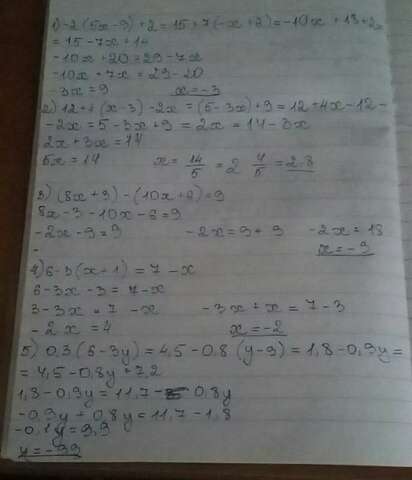 1) -2(5x-9)+2=15+7(-x+2)=-10x+18+2=
=15-7x+14
-10x+20=29-7x
-10x+7x=29-20
-3x=9 x=-3
2) 12+4(x-3)-2x=(5-3x)+9=12+4x-12-
-2x=5-3x+9=2x=14-3x
2x+3x=14
5x=14 x=14/5=2 4/5=2.8
3) (8x+3)-(10x+6)=9
8x-3-10x-6=9
-2x-9=9 -2x=9+9 -2x=18
- x=-9
4) 6-3(x+1)=7-x
6-3x-3=7-x
3-3x=7-x -3x+x=7-3
-2x=4 x=-2
5) 0,3(6-3y)=4,5-0,8(y-9)=1,8-0,9y=
=4,5-0,8y+7,2
1,8-0,9y=11,7-0,8y
-0,9y+0,8y=11,7-1,8
-0,1y=9,9
y=-99